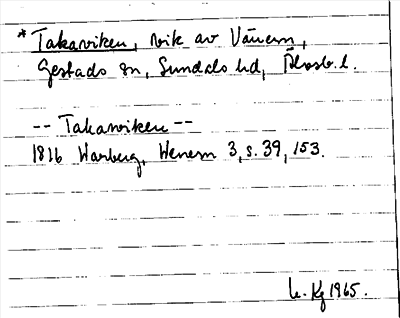 * Takaviken, vik av Vänern,
Gestads sn, Sundals hd, Älvsb. l.
-- Takanviken --
1816 Warberg, Wenern 3, s. 39, 153.
Kg 1965.